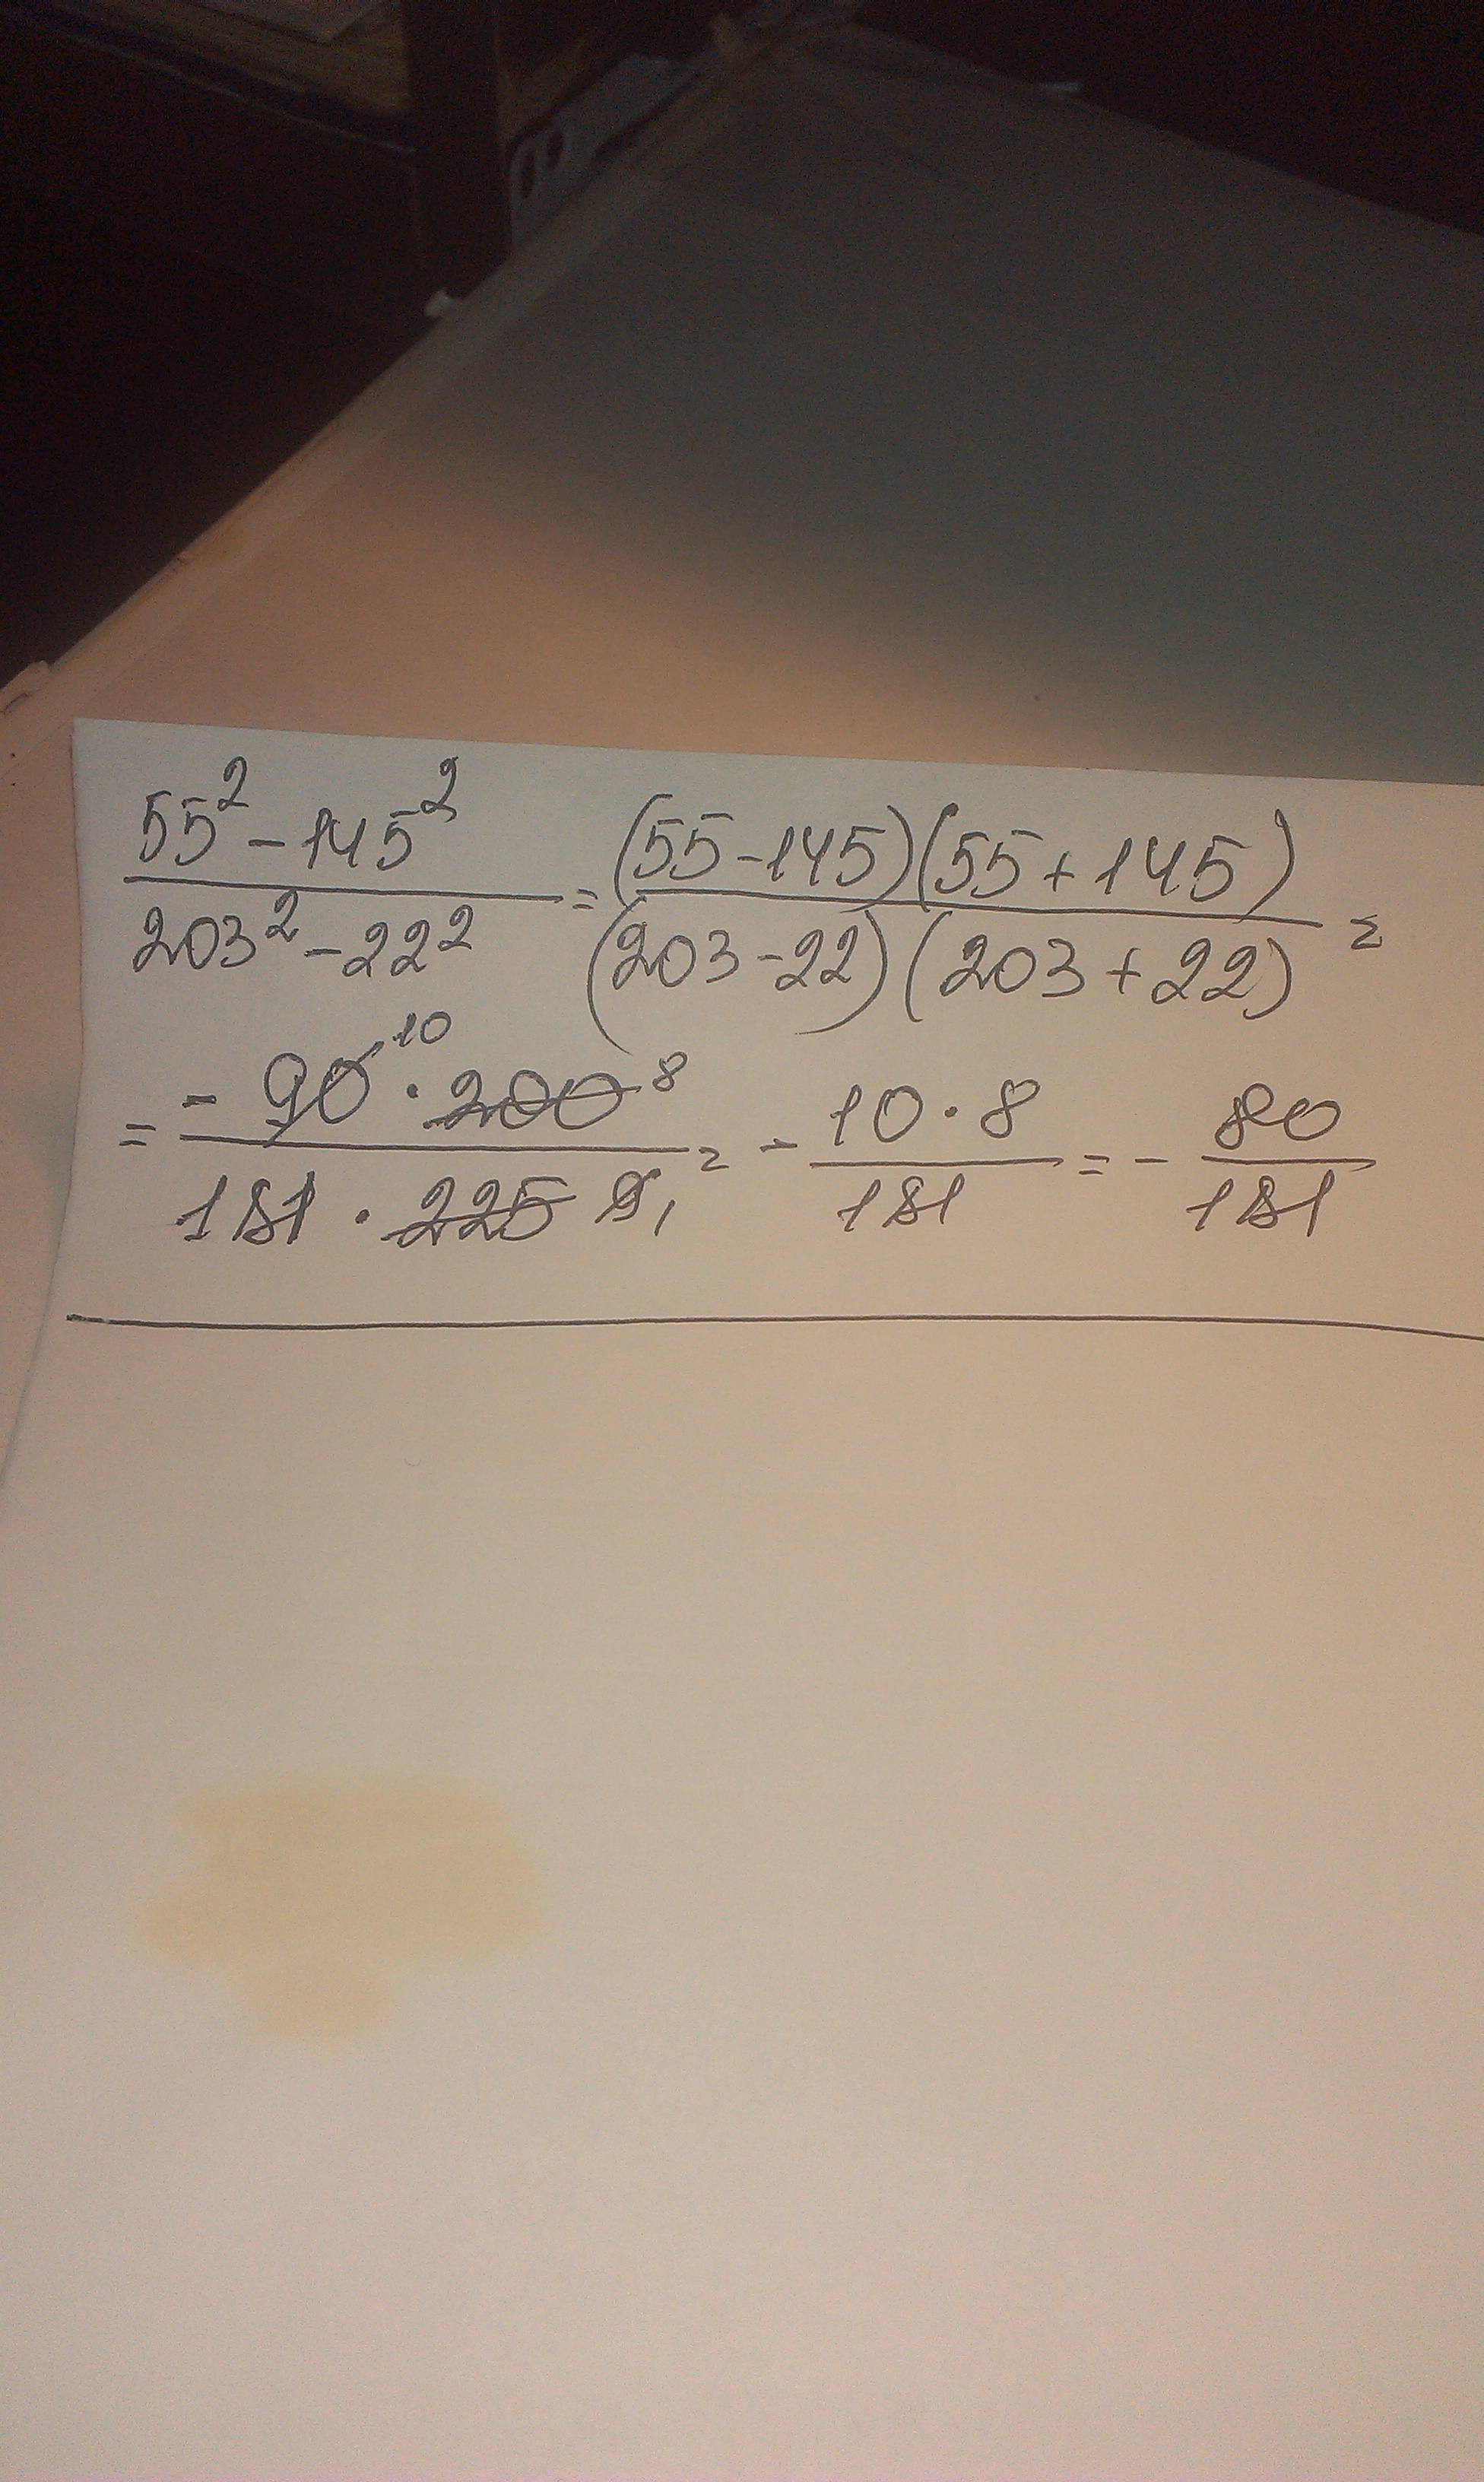 55² - 145² / 203² - 22² = (55 - 145)(55 + 145) / (203 - 22)(203 + 22) =
= - 90 10 · 200 8 / 181 · 225 9 1 = - 10 · 8 / 181 = - 80 / 181